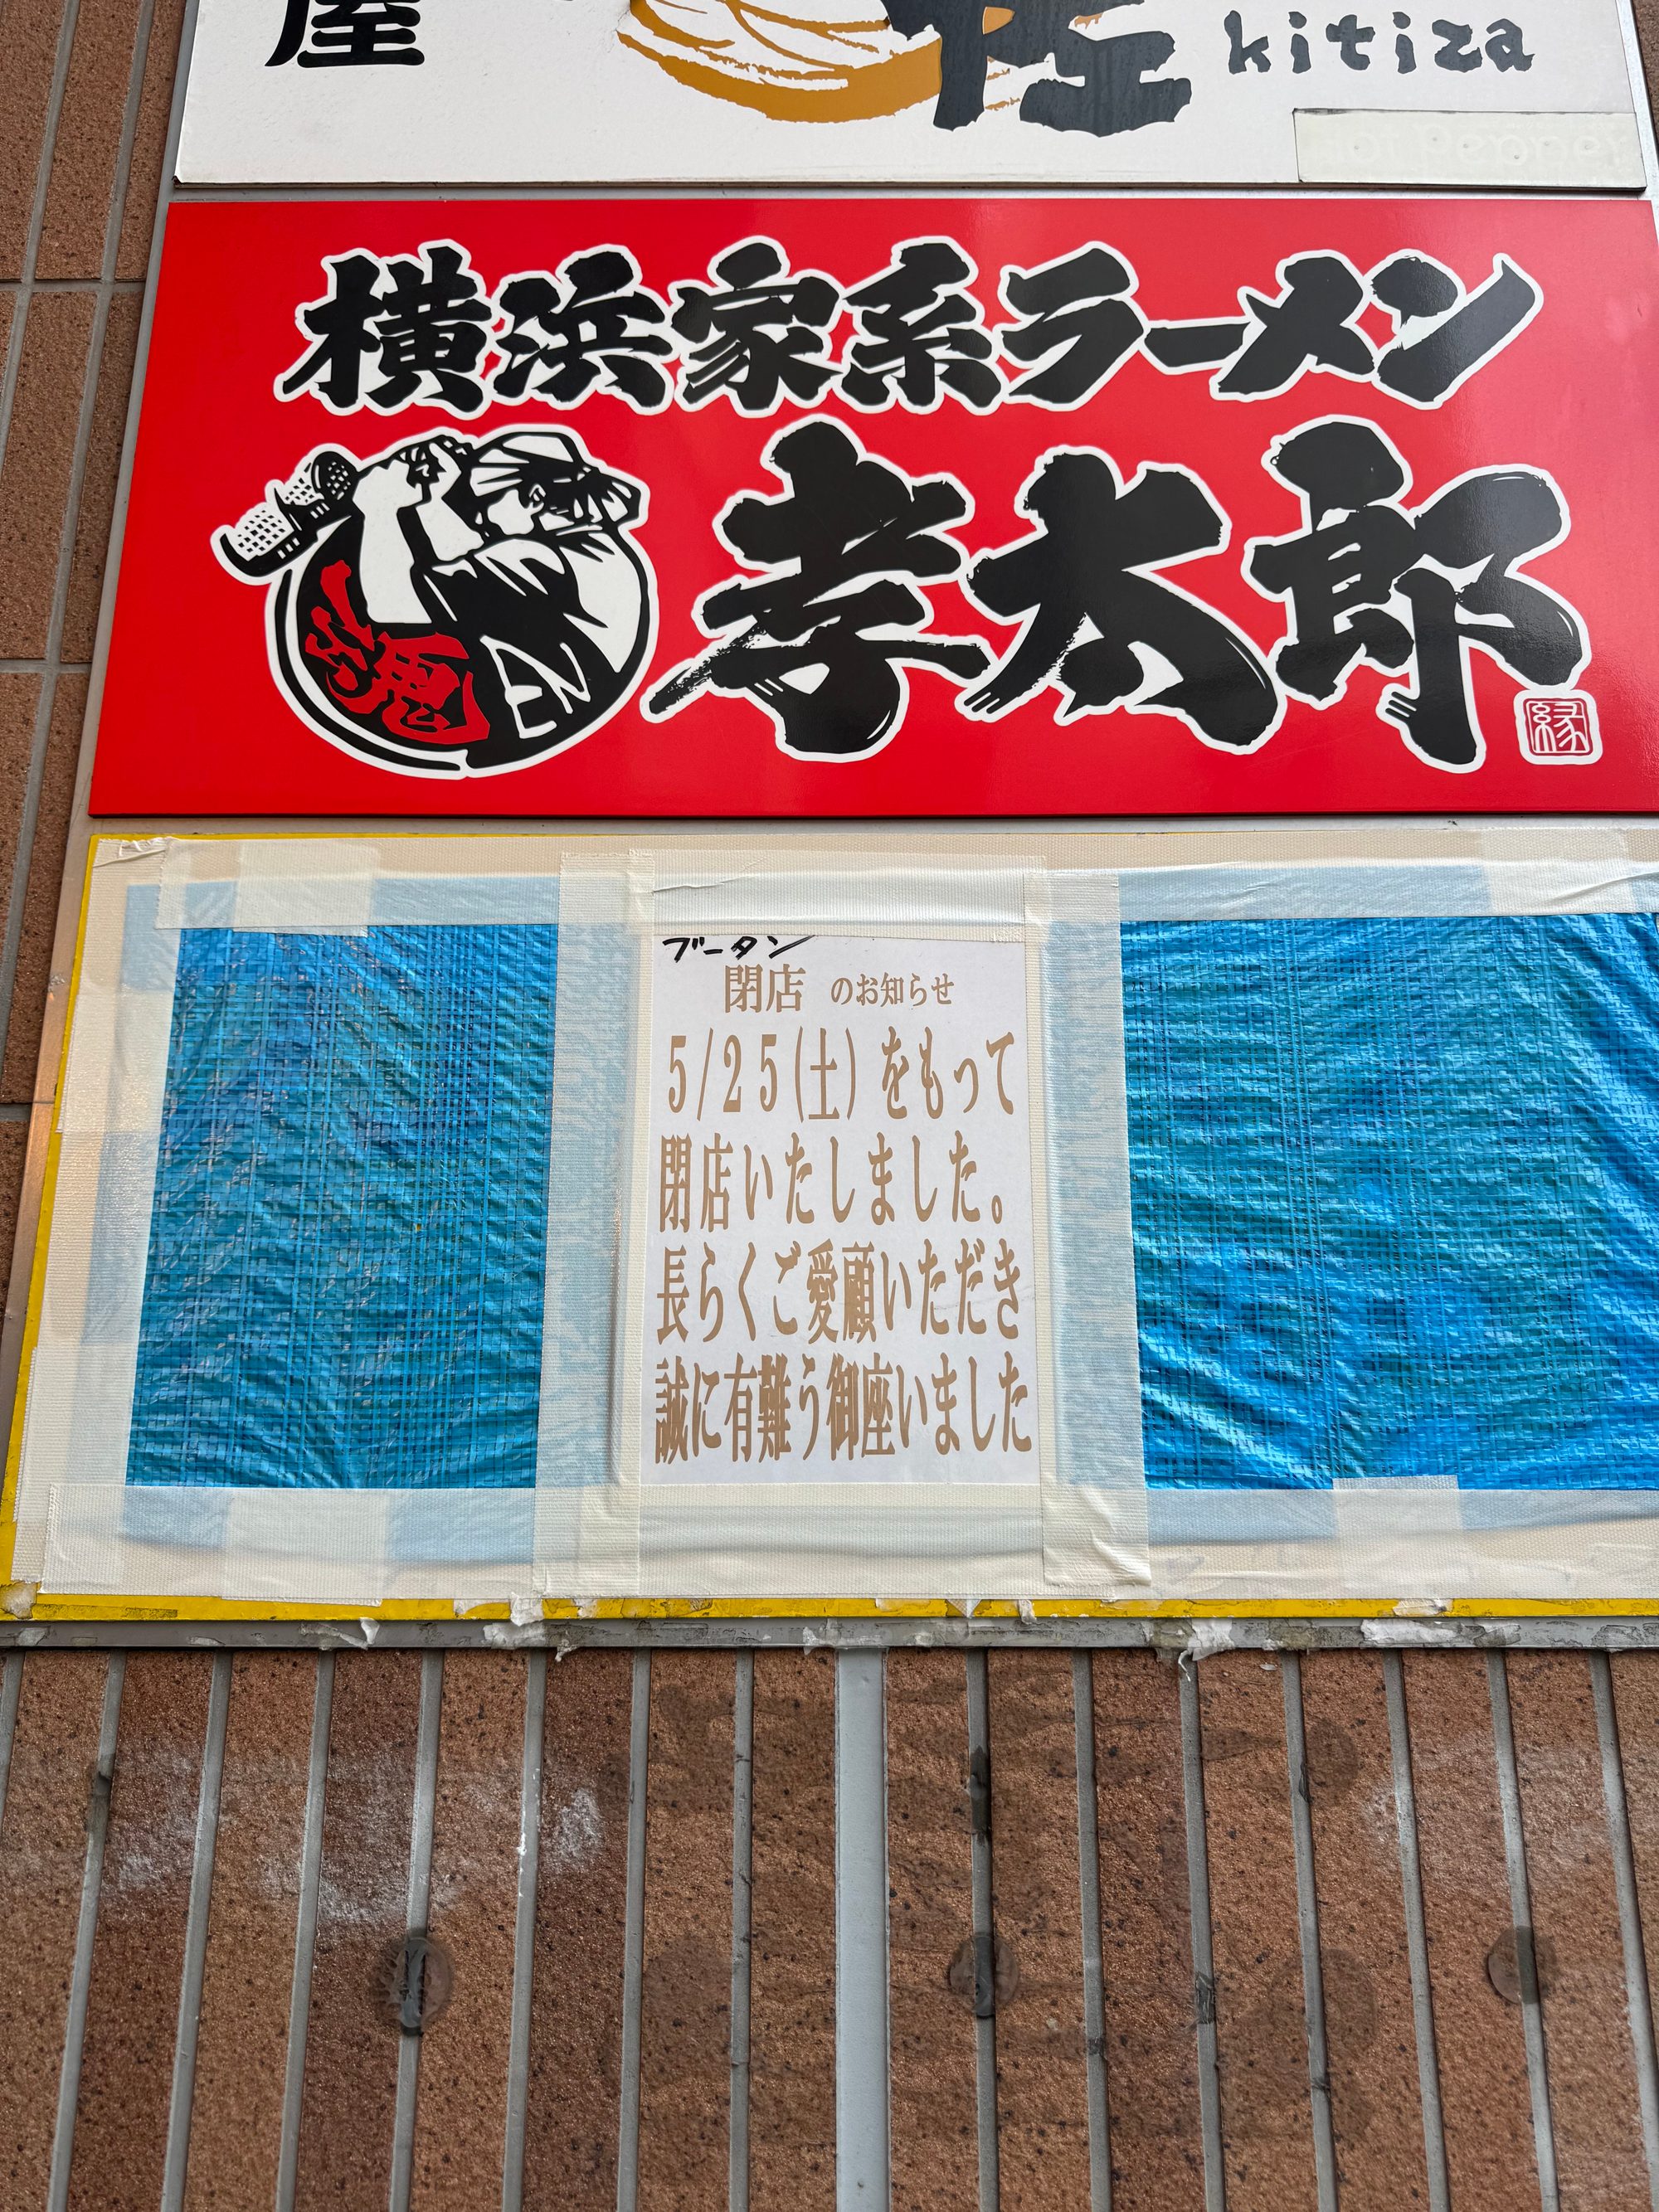 屋
kitiza
Hot Pepper
横浜家系ラーメン
孝太郎
魂
縁
ブータン
閉店 のお知らせ
5/25(土)をもって
閉店いたしました。
長らくご愛顧いただき
誠に有難う御座いました